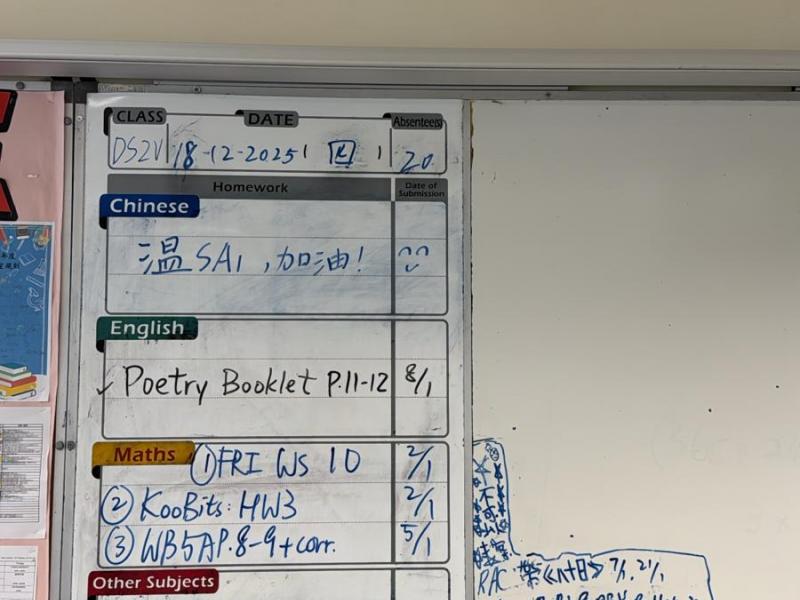 CLASS DATE Absentee(s)
DS2V 18-12-2025 ( 四 ) 20
Homework Date of Submission
Chinese
温 SA1 , 加油!
English
✓ Poetry Booklet P.11-12 8/1
Maths ① FRI WS 10 2/1
② KooBits: HW3 2/1
③ WB5A P.8-9 + corr. 5/1
Other Subjects
不可以
RAC
7/1, 21/1